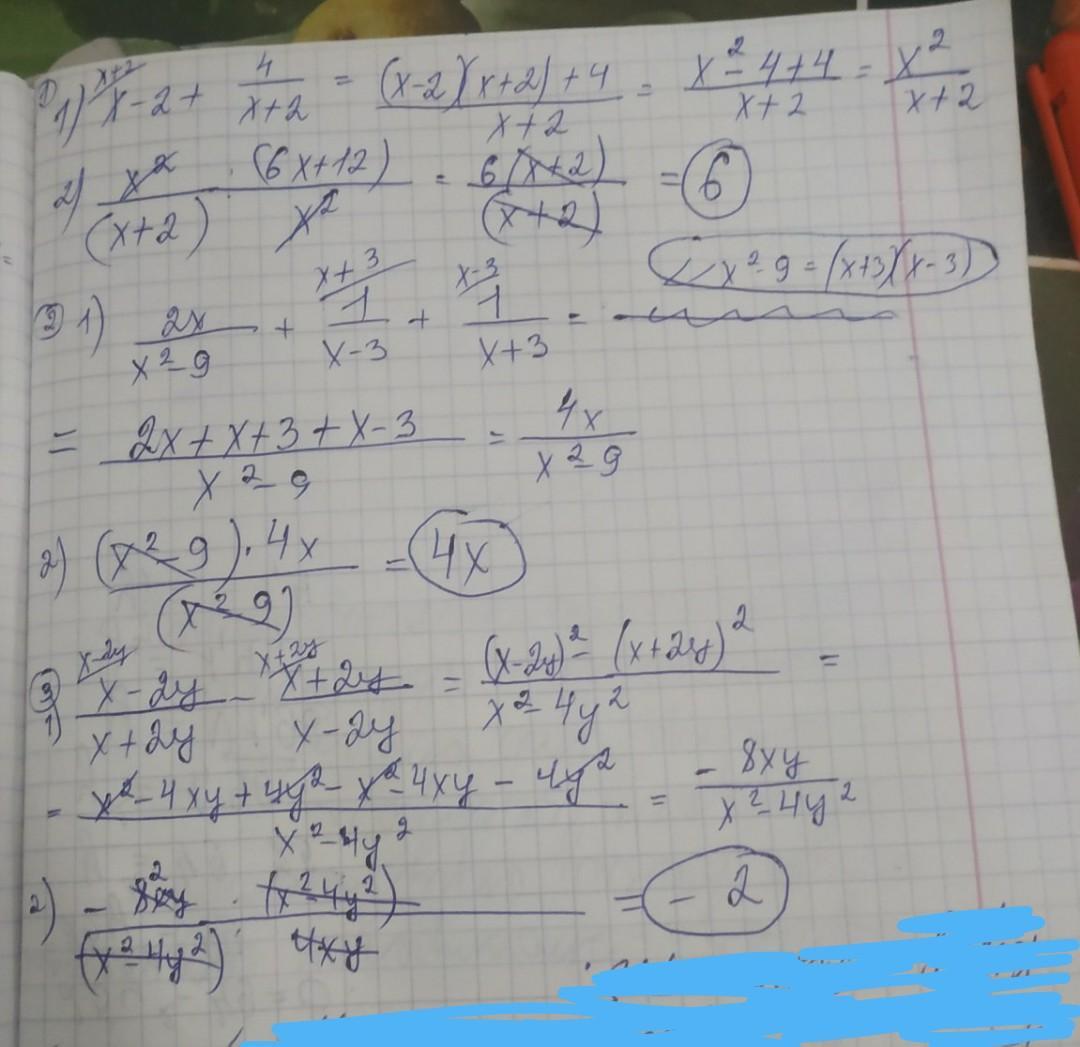 ① 1) x-2 + 4/(x+2) = ((x-2)(x+2)+4)/(x+2) = (x²-4+4)/(x+2) = x²/(x+2)
2) x²/(x+2) · (6x+12)/x² = 6(x+2)/(x+2) = 6
x²-9 = (x+3)(x-3)
② 1) 2x/(x²-9) + 1/(x-3) + 1/(x+3) =
= (2x+x+3+x-3)/(x²-9) = 4x/(x²-9)
2) (x²-9)·4x/(x²-9) = 4x
③ 1) (x-2y)/(x+2y) - (x+2y)/(x-2y) = ((x-2y)²-(x+2y)²)/(x²-4y²) =
= (x²-4xy+4y²-x²-4xy-4y²)/(x²-4y²) = -8xy/(x²-4y²)
2) -8xy/(x²-4y²) · (x²-4y²)/4xy = -2